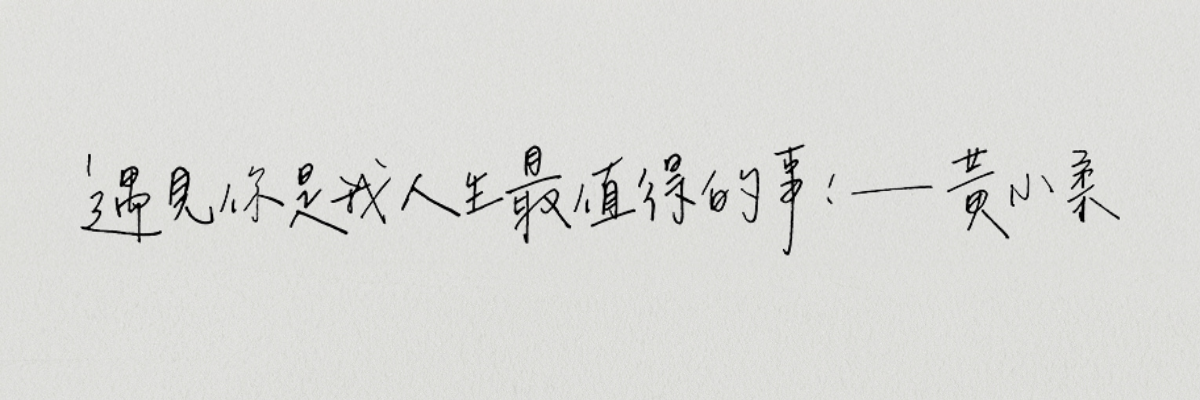 遇見你是我人生最值得的事！——黃小柔